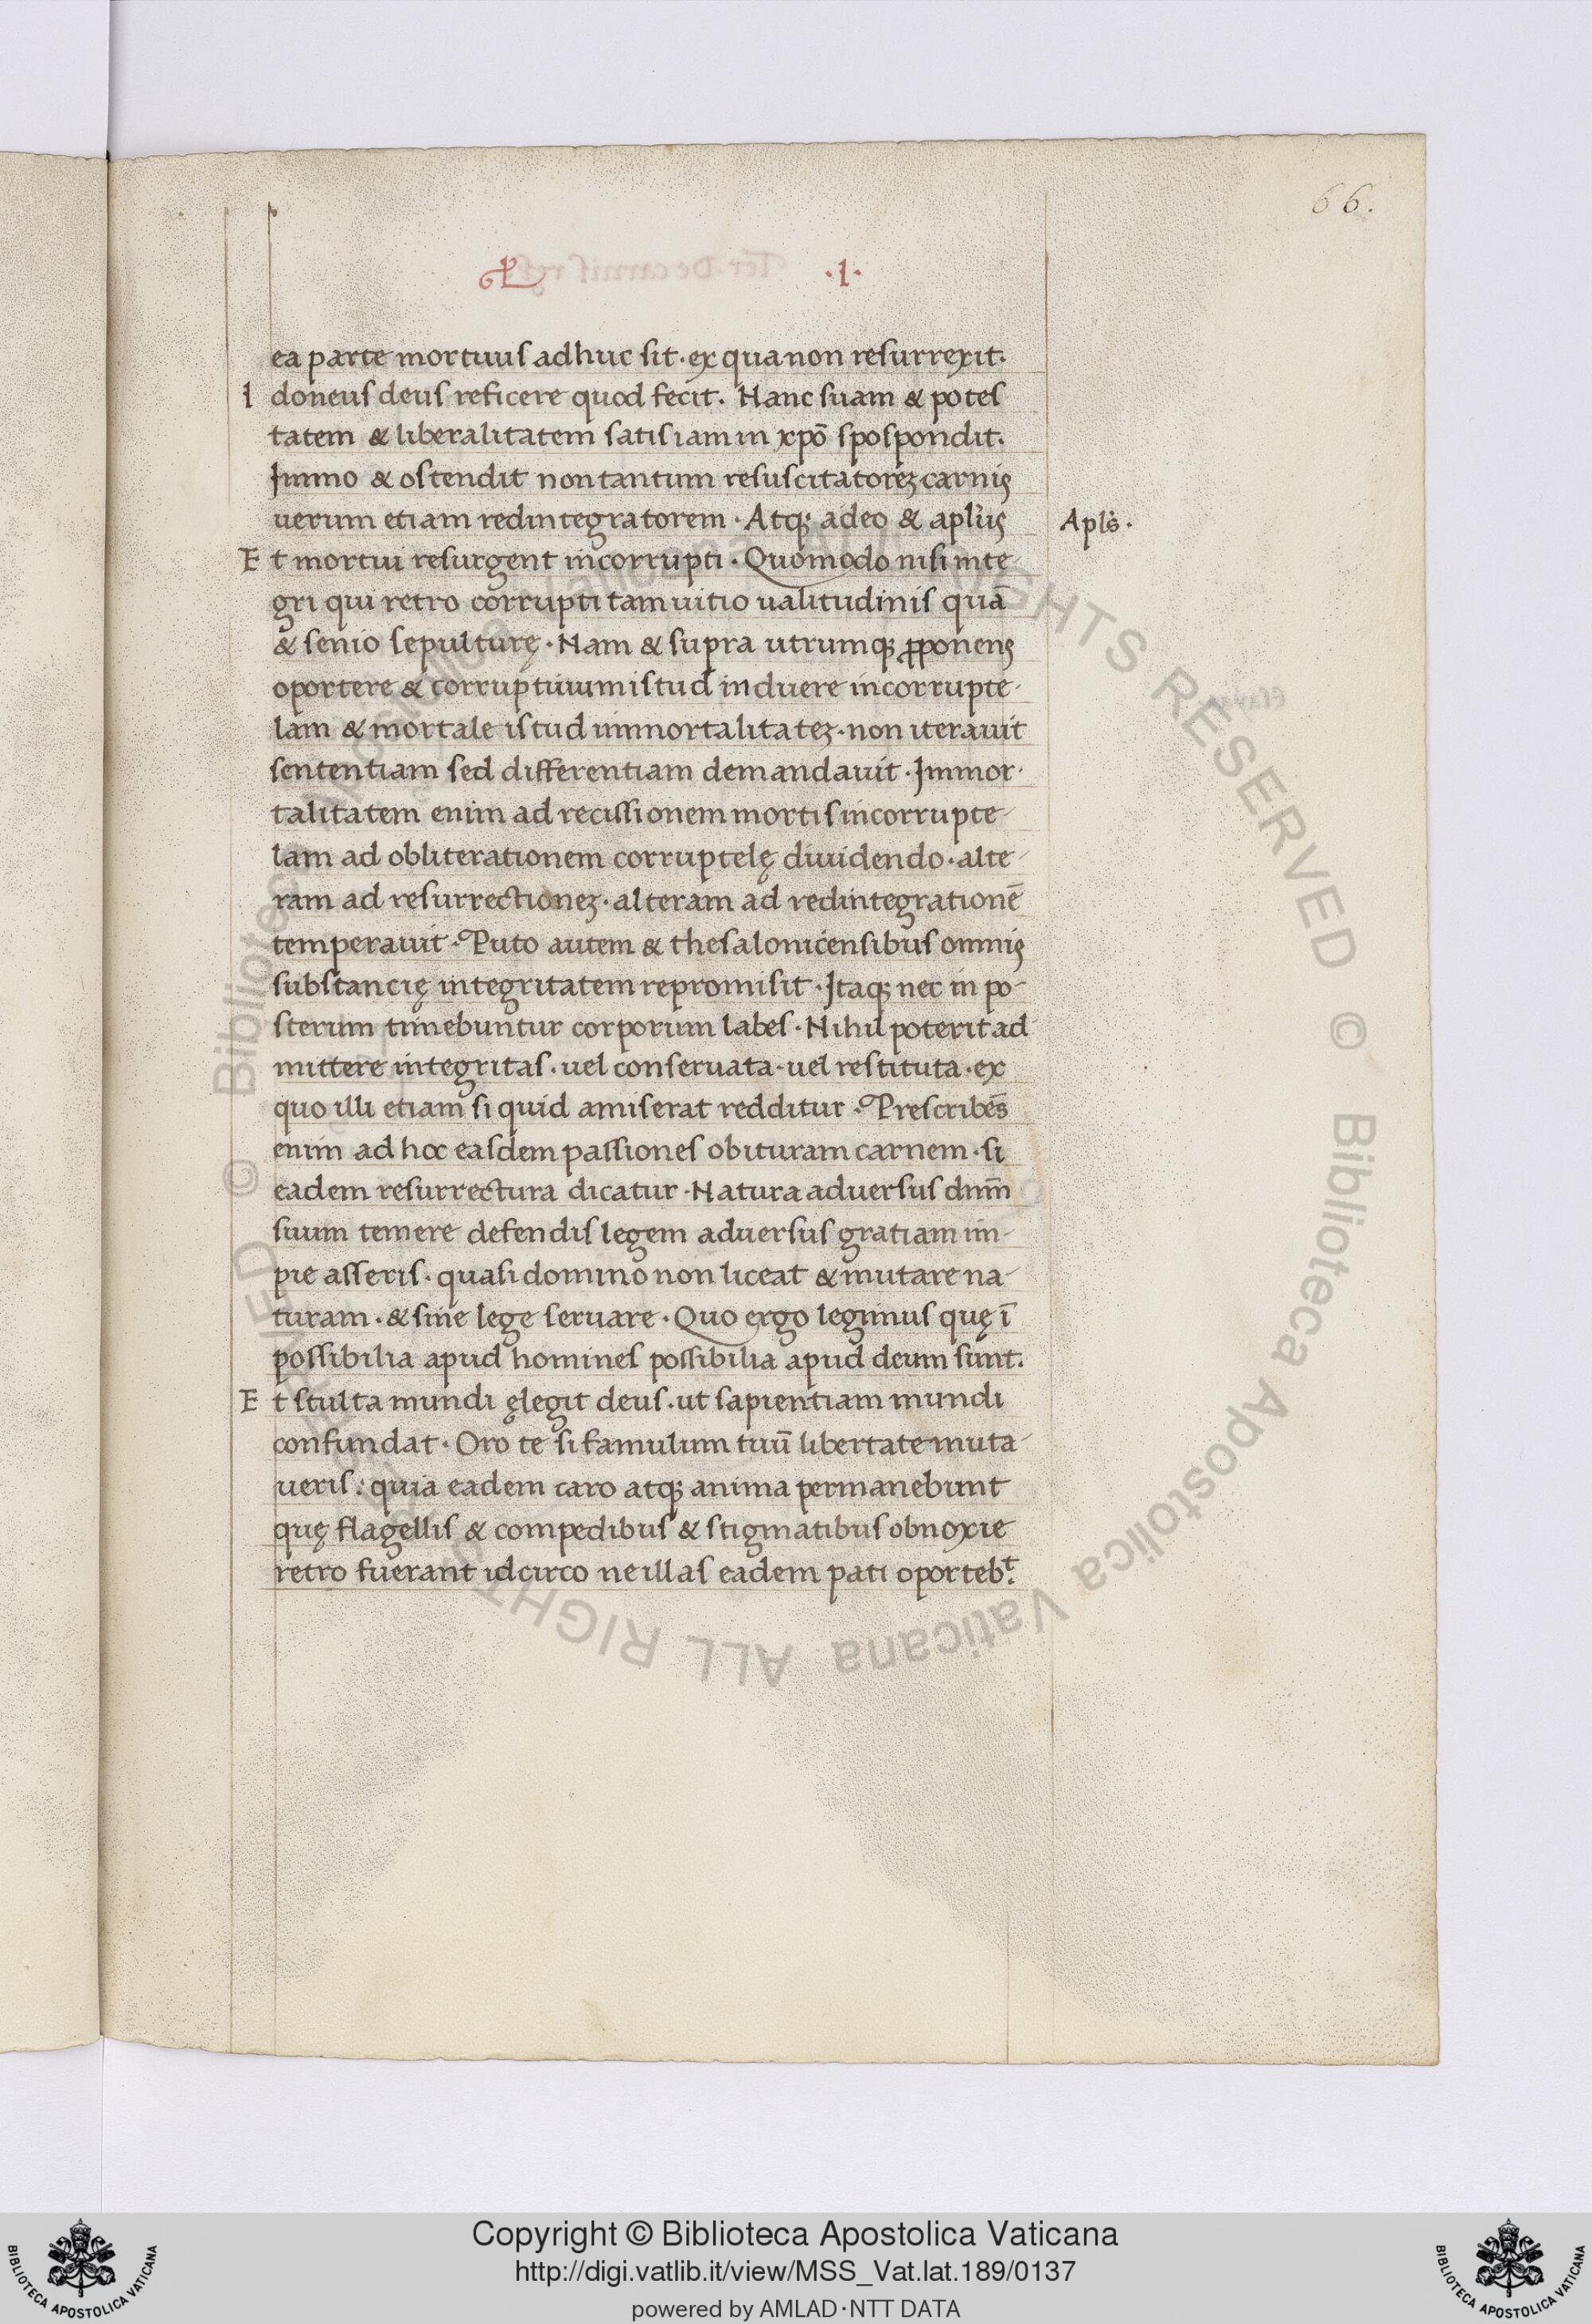 66.
.I.
ea parte mortuus adhuc sit · ex qua non resurrexit.
Idoneus deus reficere quod fecit. Hanc suam & potes
tatem & liberalitatem satis iam in xpō spospondit.
Immo & ostendit non tantum resuscitatoreꝫ carnis
uerum etiam redintegratorem · Atqꝫ adeo & aplus
Apls̄ .
Et mortui resurgent incorrupti · Quomodo nisi inte-
gri qui retro corrupti tam uitio ualitudinis quā
& senio sepulturę · Nam & supra utrumqꝫ ꝓponens
oportere & corruptiuum istud induere incorrupte-
lam & mortale istud immortalitateꝫ · non iterauit
sententiam sed differentiam demandauit · Immor-
talitatem enim ad recissionem mortis incorrupte-
lam ad obliterationem corruptelę diuidendo · alte-
ram ad resurrectioneꝫ · alteram ad redintegrationē
temperauit · Puto autem & thesalonicensibus omnis
substancię integritatem repromisit · Itaqꝫ nec in po-
sterum timebuntur corporum labes · Nihil poterit ad
mittere integritas · uel conseruata · uel restituta · ex
quo illi etiam si quid amiserat redditur · Prescribēs
enim ad hoc easdem passiones obituram carnem · si
eadem resurrectura dicatur · Natura aduersus dnm̄
suum temere defendis legem aduersus gratiam im-
pie asseris · quasi domino non liceat & mutare na-
turam · & sine lege seruare · Quo ergo legimus quę ī
possibilia apud homines possibilia apud deum sunt.
Et stulta mundi ęlegit deus · ut sapientiam mundi
confundat · Oro te si famulum tuū libertate muta-
ueris : quia eadem caro atqꝫ anima permanebunt
quę flagellis & compedibus & stigmatibus obnoxie
retro fuerant idcirco ne illas eadem pati oportebᵗ.
© Biblioteca Apostolica Vaticana ALL RIGHTS RESERVED © Biblioteca Apostolica Vaticana ALL RIGHTS RESERVED
Copyright © Biblioteca Apostolica Vaticana
http://digi.vatlib.it/view/MSS_Vat.lat.189/0137
powered by AMLAD·NTT DATA
BIBLIOTECA APOSTOLICA VATICANA
BIBLIOTECA APOSTOLICA VATICANA